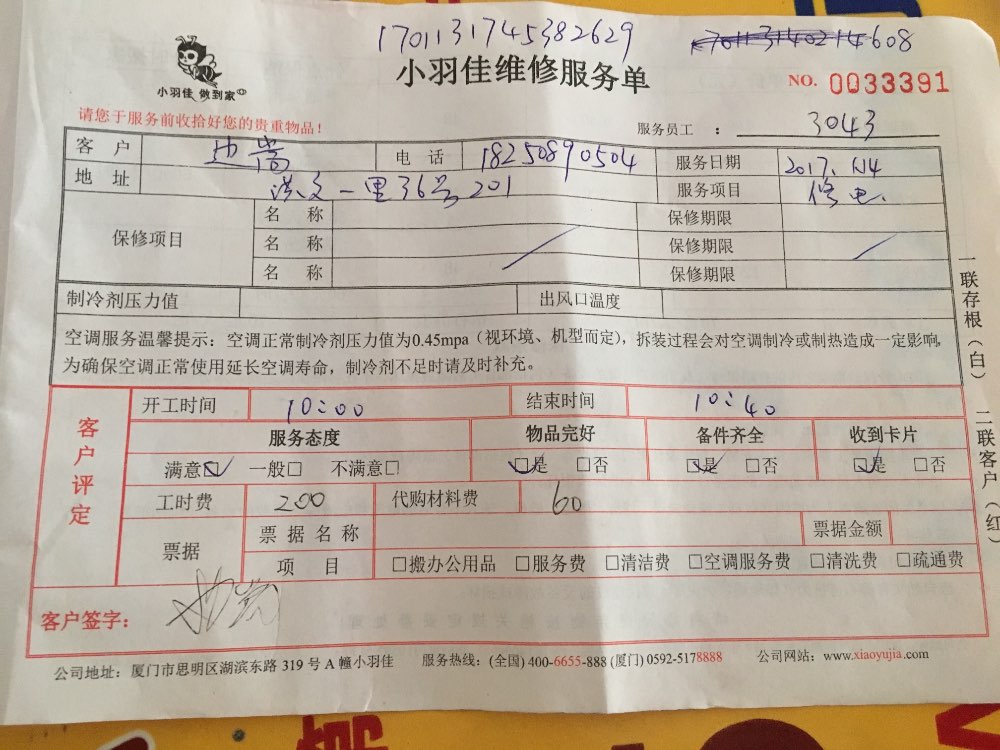 1701131745382629
608
小羽佳 做到家
小羽佳维修服务单
NO. 0033391
请您于服务前收拾好您的贵重物品！
服务员工 ： 3043
客 户 电 话 18250890504 服务日期 2017.
地 址 洪文一里36号201 服务项目 修电.
保修项目 名 称 保修期限
名 称 保修期限
名 称 保修期限
制冷剂压力值 出风口温度
空调服务温馨提示：空调正常制冷剂压力值为0.45mpa（视环境、机型而定），拆装过程会对空调制冷或制热造成一定影响，
为确保空调正常使用延长空调寿命，制冷剂不足时请及时补充。
客户评定
开工时间 10:00 结束时间 10:40
服务态度 物品完好 备件齐全 收到卡片
满意☑ 一般□ 不满意□ ☑是 □否 ☑是 □否 ☑是 □否
工时费 200 代购材料费 60
票据 票 据 名 称 票据金额
项 目 □搬办公用品 □服务费 □清洁费 □空调服务费 □清洗费 □疏通费
客户签字：
公司地址：厦门市思明区湖滨东路 319 号 A 幢小羽佳 服务热线：(全国) 400-6655-888 (厦门) 0592-5178888 公司网站：www.xiaoyujia.com
一联存根（白） 二联客户（红）